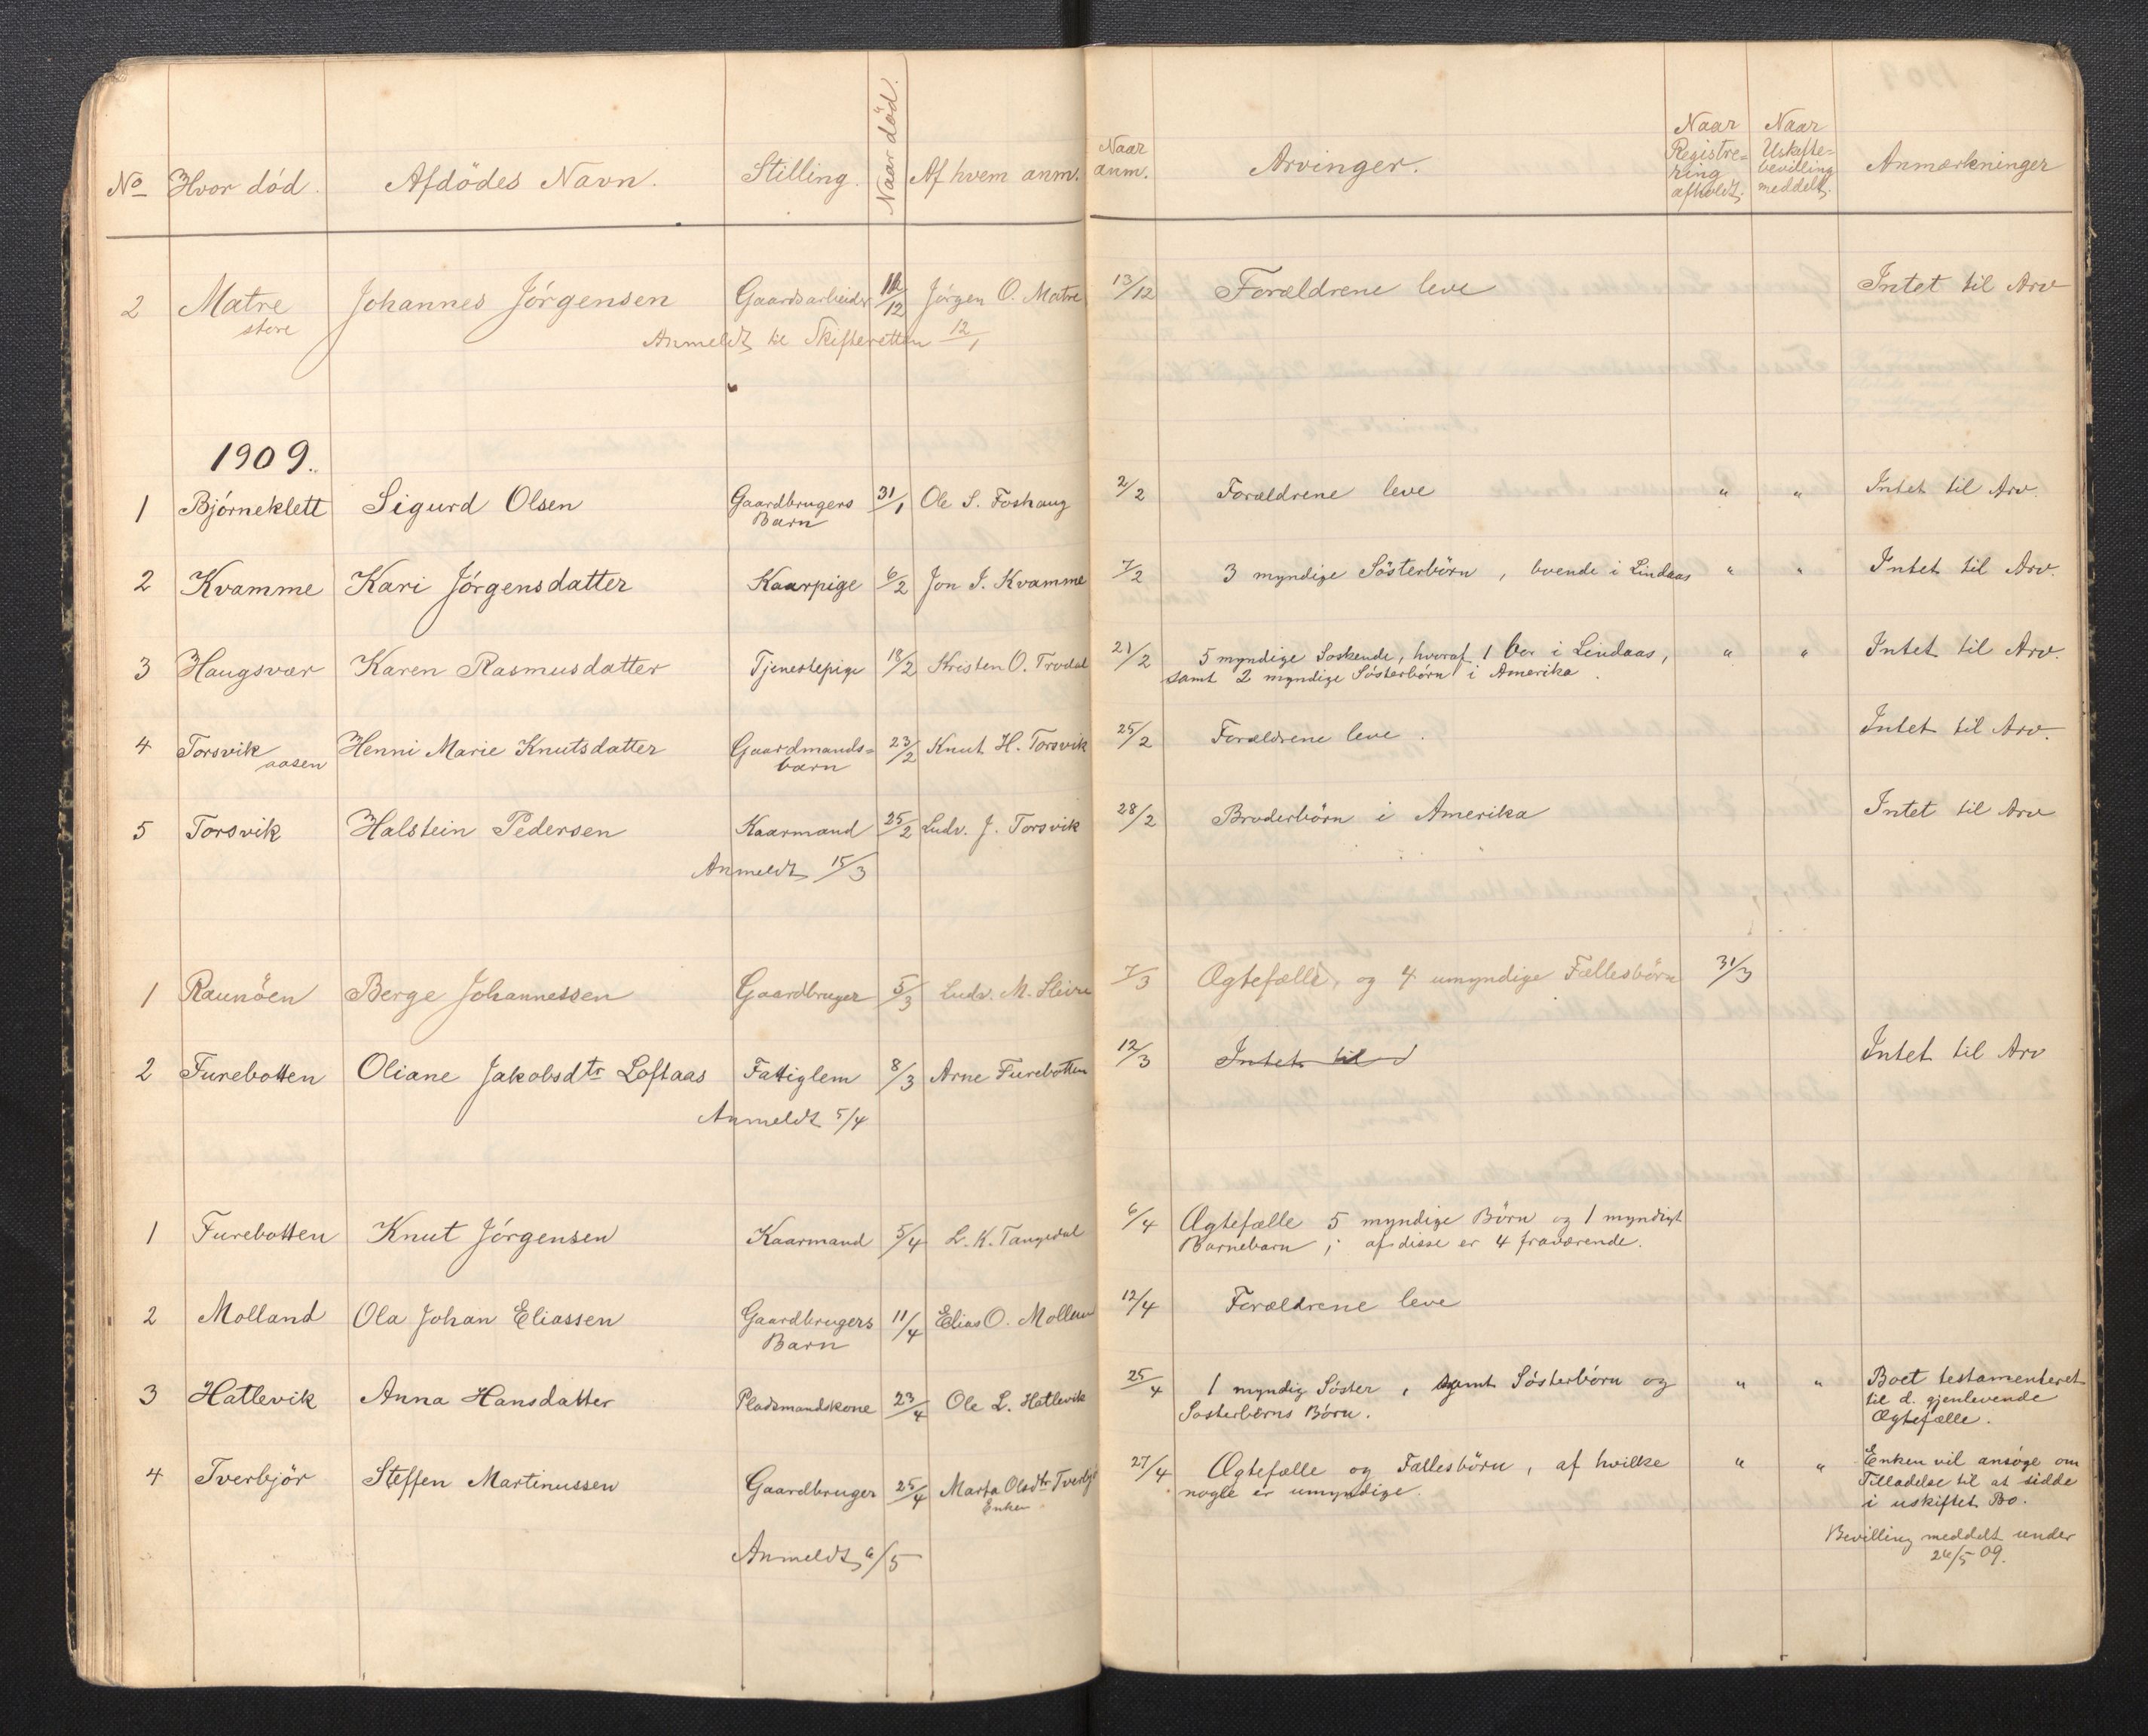 No Hvor död. Afdödes Navn. Stilling. Naar död. Af hvem anm. Naar anm. Arvinger. Naar Registre=ring afholdt. Naar Uskifte=bevilling meddelt. Anmærkninger
2 Matre Johannes Jörgensen Gaardsarbeider 12 Jörgen O. Matre 13/12 Forældrene leve Intet til Arv
store
Anmeldt til Skifteretten 12/1
1909.
1 Björneklett Sigurd Olsen Gaardbrugers 31/1 Ole S. Foshaug 2/2 Forældrene leve " " Intet til Arv.
Barn
2 Kvamme Kari Jörgensdatter Kaarpige 6/2 Jon J. Kvamme 7/2 3 myndige Sösterbörn, boende i Lindaas " " Intet til Arv.
3 Haugsvær Karen Rasmusdatter Tjenestepige 18/2 Kristen O. Trodal 21/2 5 myndige Soskende, hvoraf 1 bor i Lindaas, " " Intet til Arv.
samt 2 myndige Sösterbörn i Amerika.
4 Torsvik Henni Marie Knutsdatter Gaardmands= 23/2 Knut H. Torsvik 25/2 Forældrene leve. Intet til Arv.
aasen barn
5 Torsvik Halstein Pedersen Kaarmand 25/2 Ludv. J. Torsvik 28/2 Broderbörn i Amerika Intet til Arv
Anmeldt 15/3
1 Raunöen Berge Johannessen Gaardbruger 5/3 Ludv. M. Sleire 7/3 Ægtefælle, og 4 umyndige Fællesbörn 31/3
2 Furebotten Oliane Jakobsdtr Loftaas Fattiglem 8/3 Arne Furebotten 12/3 Intet til Intet til Arv
Anmeldt 5/4
1 Furebotten Knut Jörgensen Kaarmand 5/4 L. K. Tangedal 6/4 Ægtefælle 5 myndige Börn og 1 myndigt
Barnebarn; af disse er 4 fraværende.
2 Molland Ola Johan Eliassen Gaardbrugers 11/4 Elias O. Mollan 12/4 Forældrene leve
Barn
3 Hatlevik Anna Hansdatter Pladsmandskone 23/4 Ole L. Hatlevik 25/4 1 myndig Söster, samt Sösterbörn og " " Boet testamenteret
Sosterbörns Börn. til d. gjenlevende
Ægtefælle.
4 Tverbjör Steffen Martinussen Gaardbruger 25/4 Marta Olsdtr Tverbj 27/4 Ægtefælle og Fællesbörn, af hvilke " " Enken vil ansöge om
Enken nogle er umyndige. Tilladelse til at sidde
i uskiftet Bo.
Anmeldt 6/5 Bevilling meddelt under
26/5 09.